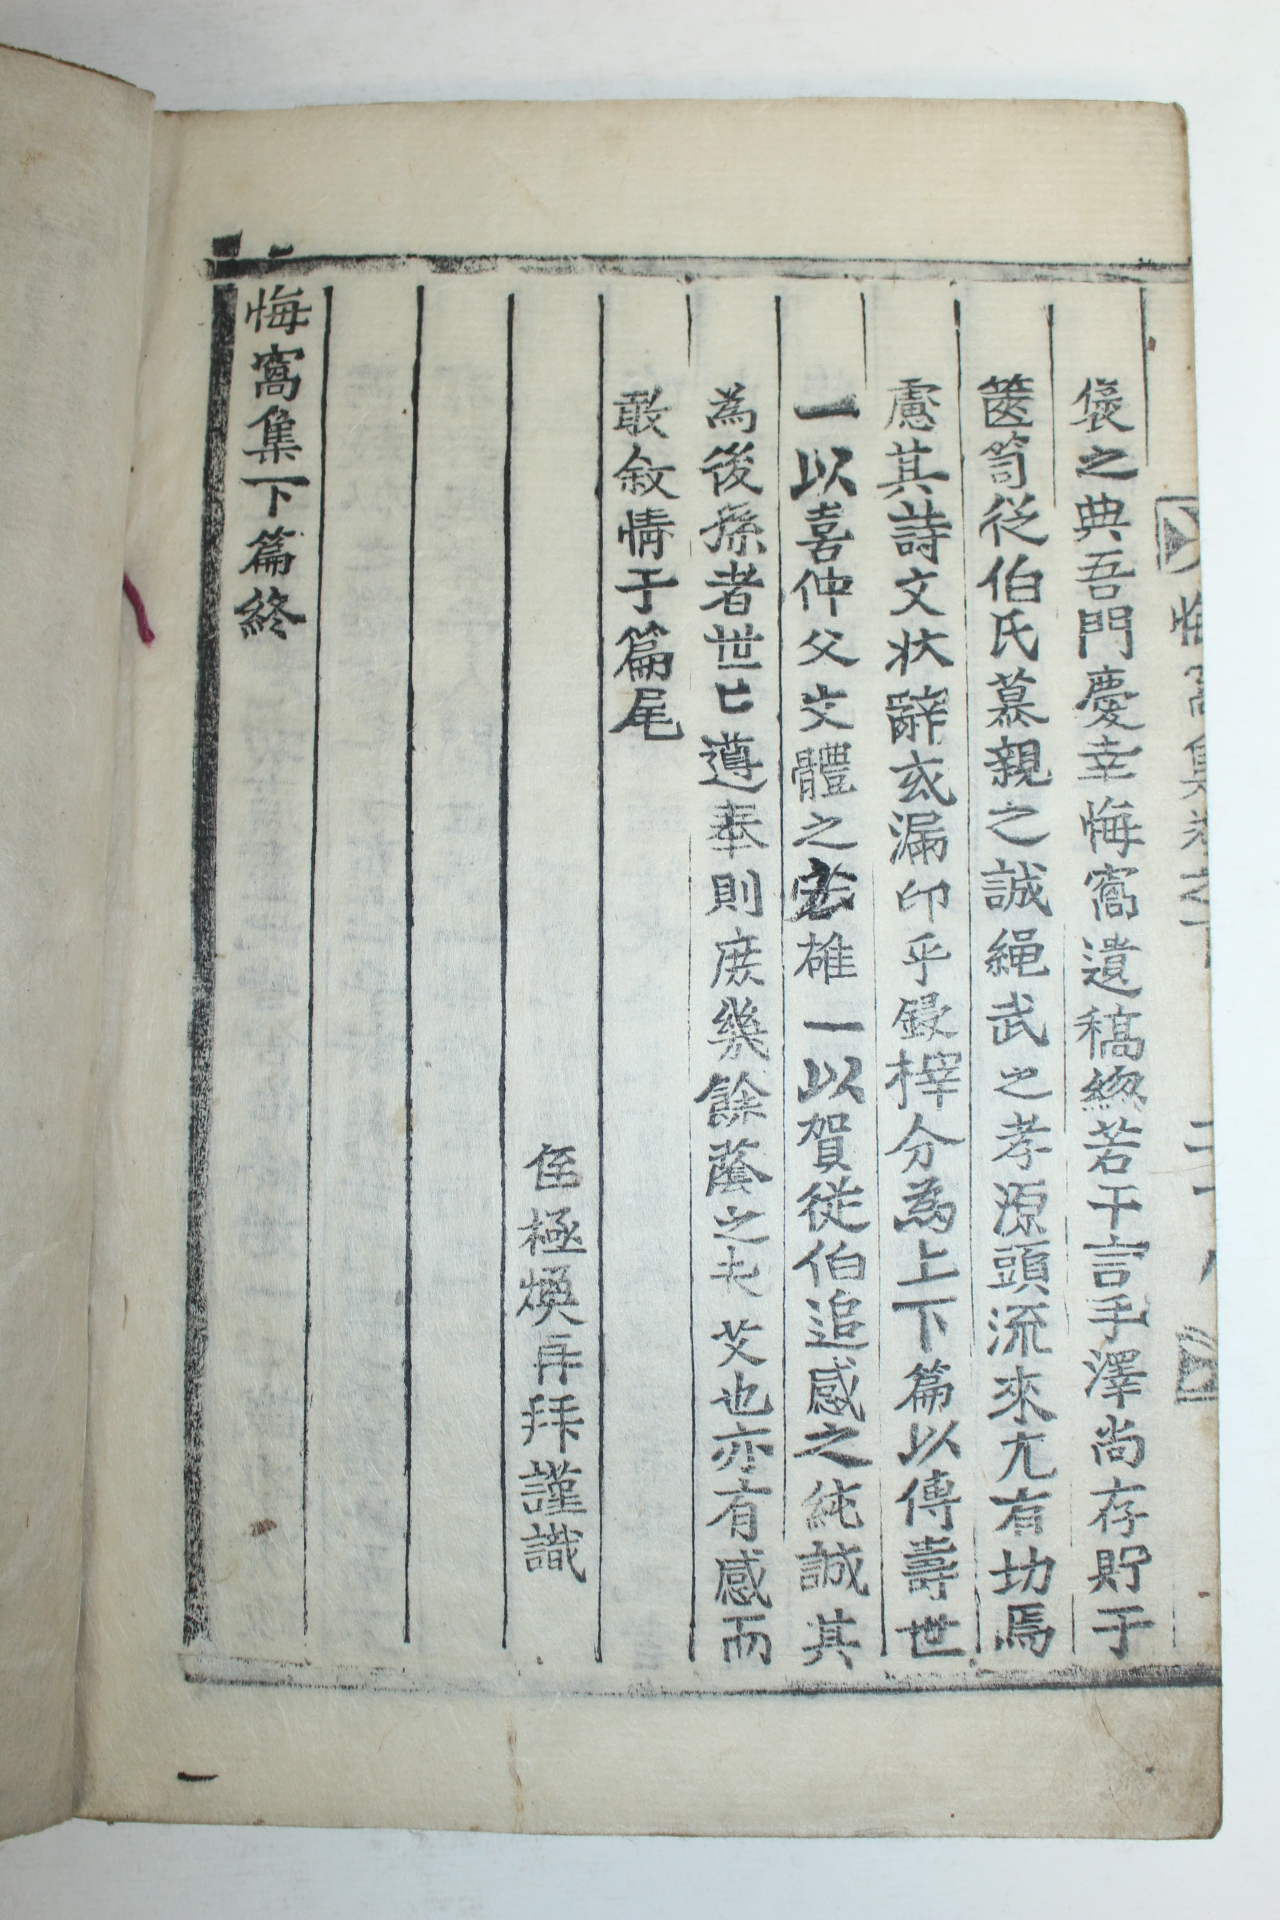 褒之典吾門慶幸悔窩遺稿緫若干言手澤尚存貯于
篋笥從伯氏慕親之誠繩武之孝源頭流來亢有功焉
慮其詩文狀辭或漏印乎鋟梓分為上下篇以傳壽世
一以喜仲父文體之宏雄一以賀從伯追感之純誠其
為後孫者世世遵奉則庶幾餘蔭之未艾也亦有感而
敢敘情于篇尾
侄極煥再拜謹識
悔窩集下篇終